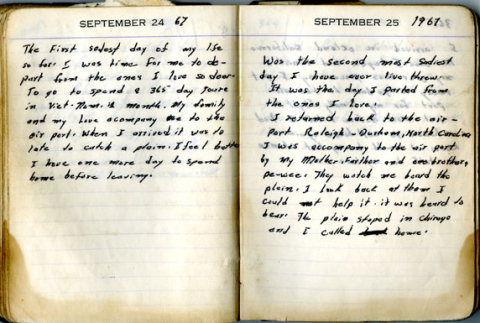 SEPTEMBER 24 67
The First sedest day of my life
so far I was time for me to de-
part form the ones I love so dear.
To go to spend a 365 day toure
in Viet-Nam. 12 month. My family
and my love acompany me to the
air port. When I arrived it was to
late to catch a plain. I feel bette
I have one more day to spend
home before leaving.
SEPTEMBER 25 1967
Was the second most sediest
day I have ever live threw.
It was the day I parted from
the ones I love.
I returned back to the air-
port Raleigh-Durham, North Carolina
I was accompany to the air port
by my Mother-Farther and one brother,
pe-wee. They watch me board the
plain. I look back at them I
could not help it. it was heard to
bear. The plain stoped in chicago
and I called home.